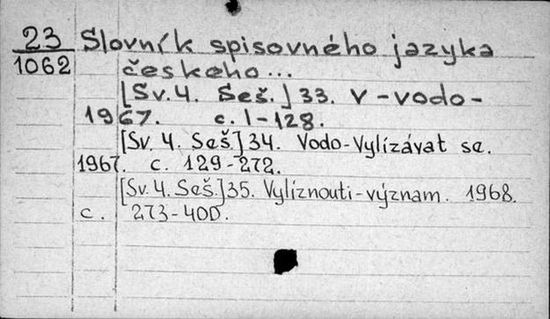 23 Slovník spisovného jazyka
1062 českeho...
[Sv.4. Seš.] 33. V-vodo-
1967. c. 1-128.
[Sv. 4. Seš] 34. Vodo-Vylízávat se.
1967. c. 129-272.
[Sv. 4. Seš.] 35. Vylíznouti-význam. 1968.
c. 273-400.